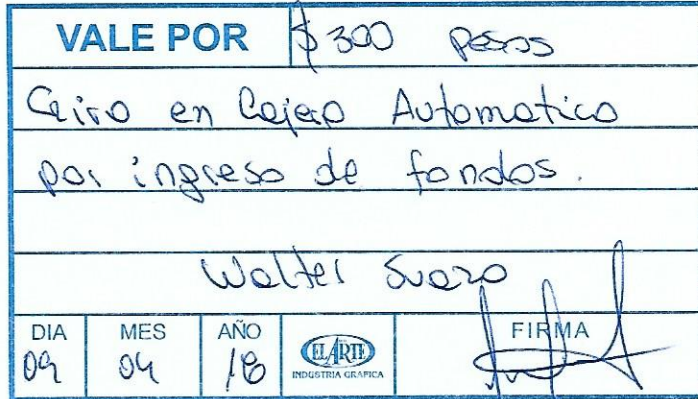 VALE POR $300 Pesos
Giro en Cajero Automatico
por ingreso de fondos.
Walter Suazo
DIA MES AÑO FIRMA
09 04 18
EL ARTE
INDUSTRIA GRAFICA